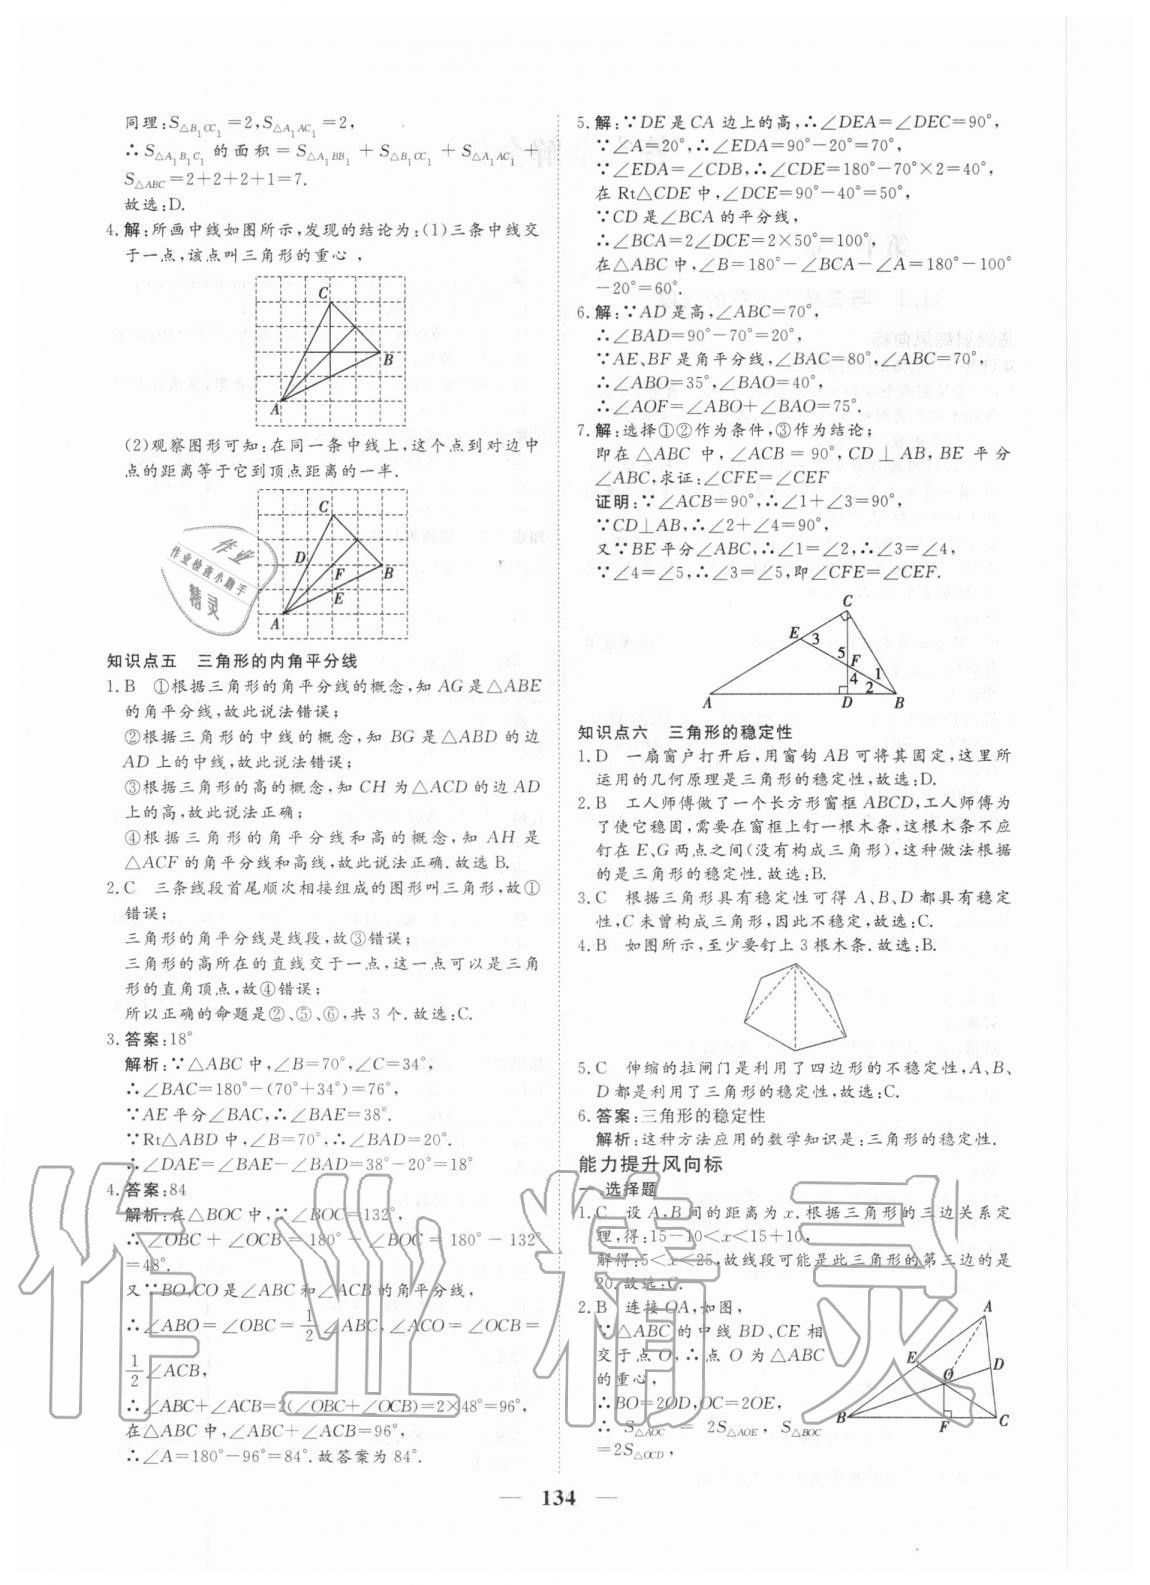 同理:S△B₁CC₁=2,S△A₁AC₁=2,
∴S△A₁B₁C₁ 的面积=S△A₁BB₁+S△B₁CC₁+S△A₁AC₁+
S△ABC=2+2+2+1=7.
故选:D.
4.解:所画中线如图所示,发现的结论为:(1)三条中线交
于一点,该点叫三角形的重心,
C
B
A
(2)观察图形可知:在同一条中线上,这个点到对边中
点的距离等于它到顶点距离的一半.
C
D
F
B
E
A
作业
作业检查小助手
精灵
知识点五 三角形的内角平分线
1.B ①根据三角形的角平分线的概念,知 AG 是△ABE
的角平分线,故此说法错误;
②根据三角形的中线的概念,知 BG 是△ABD 的边
AD 上的中线,故此说法错误;
③根据三角形的高的概念,知 CH 为△ACD 的边 AD
上的高,故此说法正确;
④根据三角形的角平分线和高的概念,知 AH 是
△ACF 的角平分线和高线,故此说法正确.故选 B.
2.C 三条线段首尾顺次相接组成的图形叫三角形,故①
错误;
三角形的角平分线是线段,故③错误;
三角形的高所在的直线交于一点,这一点可以是三角
形的直角顶点,故④错误;
所以正确的命题是②、⑤、⑥,共 3 个.故选:C.
3.答案:18°
解析:∵△ABC 中,∠B=70°,∠C=34°,
∴∠BAC=180°-(70°+34°)=76°,
∵AE 平分∠BAC,∴∠BAE=38°.
∵Rt△ABD 中,∠B=70°,∴∠BAD=20°.
∴∠DAE=∠BAE-∠BAD=38°-20°=18°
4.答案:84
解析:在△BOC 中,∵∠BOC=132°,
∴∠OBC+∠OCB=180°-∠BOC=180°-132°
=48°.
又∵BO,CO 是∠ABC 和∠ACB 的角平分线,
∴∠ABO=∠OBC=1/2∠ABC,∠ACO=∠OCB=
1/2∠ACB,
∴∠ABC+∠ACB=2(∠OBC+∠OCB)=2×48°=96°,
在△ABC 中,∵∠ABC+∠ACB=96°,
∴∠A=180°-96°=84°.故答案为 84°.
5.解:∵DE 是 CA 边上的高,∴∠DEA=∠DEC=90°,
∵∠A=20°,∴∠EDA=90°-20°=70°,
∵∠EDA=∠CDB,∴∠CDE=180°-70°×2=40°,
在 Rt△CDE 中,∠DCE=90°-40°=50°,
∵CD 是∠BCA 的平分线,
∴∠BCA=2∠DCE=2×50°=100°,
在△ABC 中,∠B=180°-∠BCA-∠A=180°-100°
-20°=60°.
6.解:∵AD 是高,∠ABC=70°,
∴∠BAD=90°-70°=20°,
∵AE、BF 是角平分线,∠BAC=80°,∠ABC=70°,
∴∠ABO=35°,∠BAO=40°,
∴∠AOF=∠ABO+∠BAO=75°.
7.解:选择①②作为条件,③作为结论;
即在△ABC 中,∠ACB=90°,CD⊥AB,BE 平分
∠ABC,求证:∠CFE=∠CEF
证明:∵∠ACB=90°,∴∠1+∠3=90°,
∵CD⊥AB,∴∠2+∠4=90°,
又∵BE 平分∠ABC,∴∠1=∠2,∴∠3=∠4,
∵∠4=∠5,∴∠3=∠5,即∠CFE=∠CEF.
C
E 3
5 F
4 1
2
A D B
知识点六 三角形的稳定性
1.D 一扇窗户打开后,用窗钩 AB 可将其固定,这里所
运用的几何原理是三角形的稳定性,故选:D.
2.B 工人师傅做了一个长方形窗框 ABCD,工人师傅为
了使它稳固,需要在窗框上钉一根木条,这根木条不应
钉在 E、G 两点之间(没有构成三角形),这种做法根据
的是三角形的稳定性.故选:B.
3.C 根据三角形具有稳定性可得 A、B、D 都具有稳定
性,C 未曾构成三角形,因此不稳定,故选:C.
4.B 如图所示,至少要钉上 3 根木条.故选:B.
5.C 伸缩的拉闸门是利用了四边形的不稳定性,A、B、
D 都是利用了三角形的稳定性,故选:C.
6.答案:三角形的稳定性
解析:这种方法应用的数学知识是:三角形的稳定性.
能力提升风向标
一、选择题
1.C 设 A,B 间的距离为 x.根据三角形的三边关系定
理,得:15-10<x<15+10,
解得:5<x<25,故线段可能是此三角形的第三边的是
20.故选:C.
2.B 连接 OA,如图,
∵△ABC 的中线 BD、CE 相
交于点 O,∴点 O 为△ABC
的重心,
∴BO=2OD,OC=2OE,
∴ S△AOC = 2S△AOE, S△BOC
=2S△OCD,
A
E
D
O
B
F
C
134
作业精灵